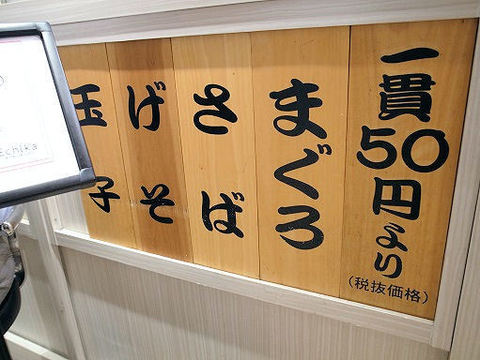 一貫50円より
(税抜価格)
まぐろ
さば
げそ
玉子
Echika